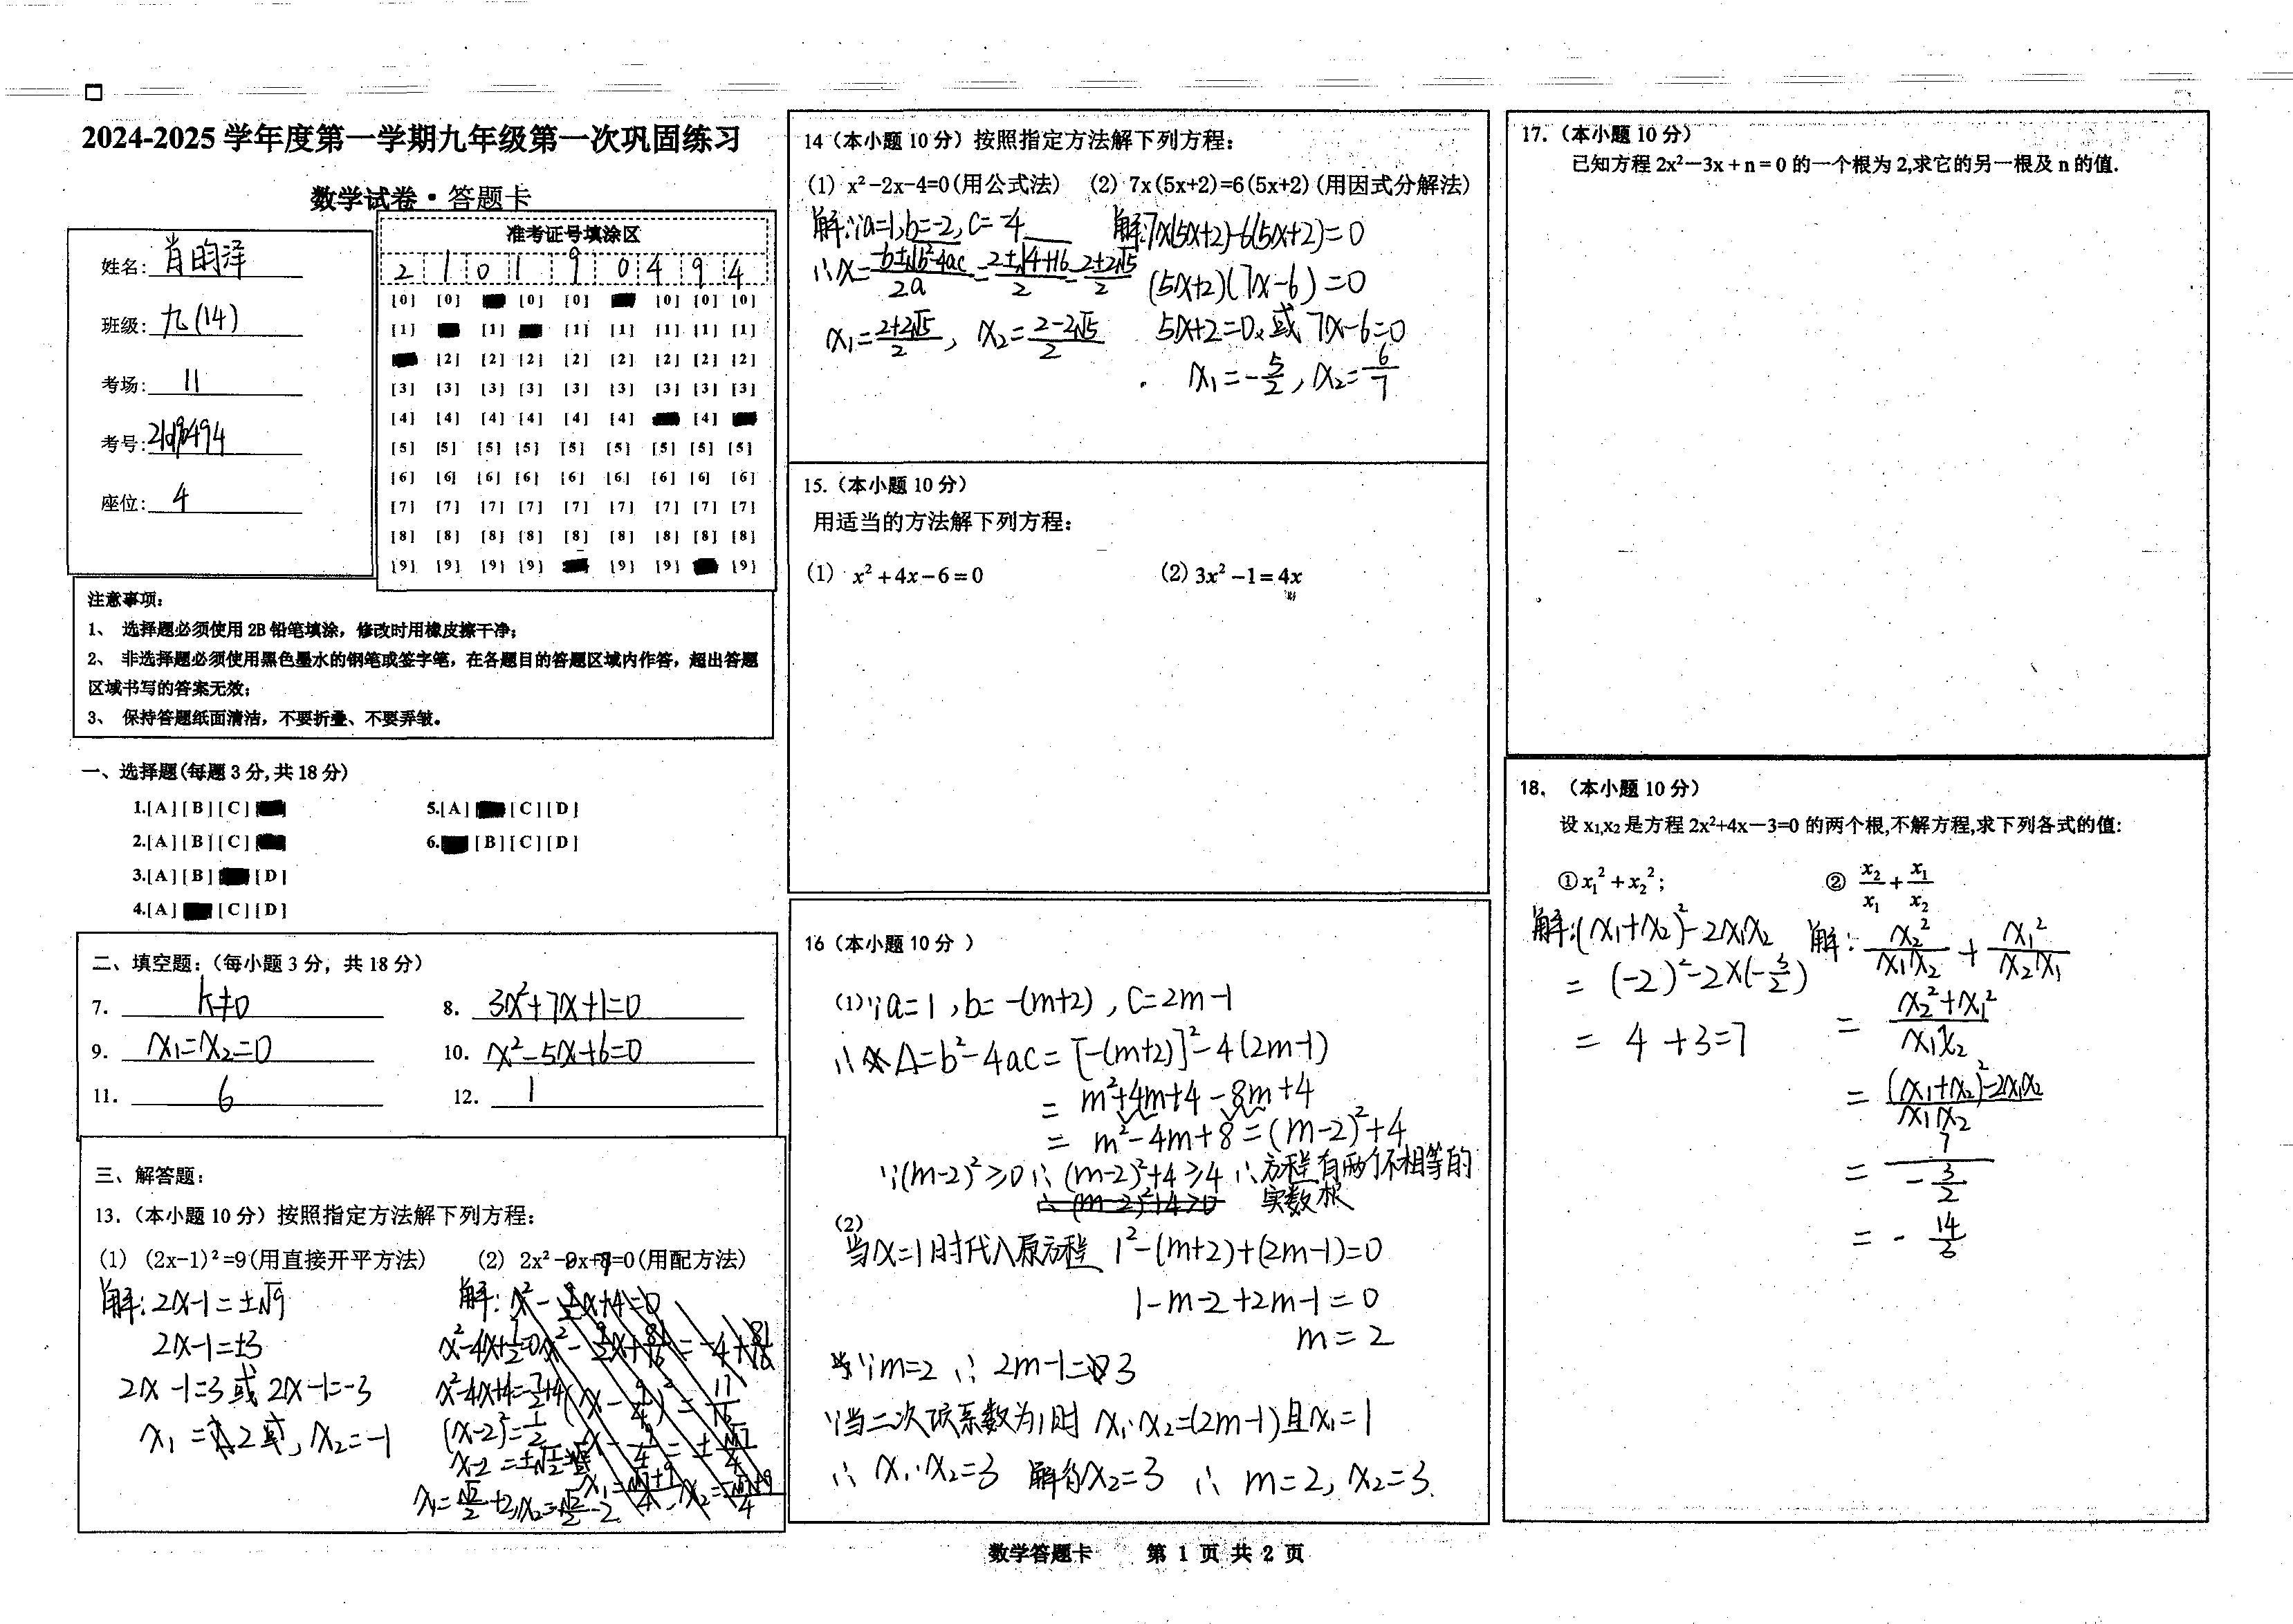 2024-2025 学年度第一学期九年级第一次巩固练习
数学试卷·答题卡
姓名: 肖昀泽
班级: 九(14)
考场: 11
考号:
座位: 4
准考证号填涂区
2 1 0 1 9 0 4 9 4
[0] [0] [0] [0] [0] [0] [0]
[1] [1] [1] [1] [1] [1] [1]
[2] [2] [2] [2] [2] [2] [2] [2]
[3] [3] [3] [3] [3] [3] [3] [3] [3]
[4] [4] [4] [4] [4] [4] [4]
[5] [5] [5] [5] [5] [5] [5] [5] [5]
[6] [6] [6] [6] [6] [6] [6] [6] [6]
[7] [7] [7] [7] [7] [7] [7] [7] [7]
[8] [8] [8] [8] [8] [8] [8] [8] [8]
[9] [9] [9] [9] [9] [9] [9]
注意事项:
1、 选择题必须使用 2B 铅笔填涂,修改时用橡皮擦干净;
2、 非选择题必须使用黑色墨水的钢笔或签字笔,在各题目的答题区域内作答,超出答题
区域书写的答案无效;
3、 保持答题纸面清洁,不要折叠、不要弄皱。
一、选择题(每题 3 分,共 18 分)
1.[A][B][C]
2.[A][B][C]
3.[A][B] [D]
4.[A] [C][D]
5.[A] [C][D]
6. [B][C][D]
二、填空题:(每小题 3 分,共 18 分)
7. k≠0
8. 3x²+7x+1=0
9. x₁=x₂=0
10. x²-5x+6=0
11. 6
12. 1
三、解答题:
13.(本小题 10 分)按照指定方法解下列方程:
(1) (2x-1)²=9(用直接开平方法)
解:2x-1=±√9
2x-1=±3
2x-1=3或2x-1=-3
x₁=2,x₂=-1
(2) 2x²-8x+7=0(用配方法)
解:
x²-4x+7/2=0
x²-4x+4=-7/2+4
(x-2)²=1/2
x-2=±√1/2
x₁=√2/2+2,x₂=√2/2-2
14(本小题 10 分)按照指定方法解下列方程:
(1) x²-2x-4=0(用公式法)
解:∵a=1,b=-2,c=-4
∴x=(-b±√(b²-4ac))/2a=(2±√(4+16))/2=(2±2√5)/2
x₁=(2+2√5)/2,x₂=(2-2√5)/2
(2) 7x(5x+2)=6(5x+2)(用因式分解法)
解:7x(5x+2)-6(5x+2)=0
(5x+2)(7x-6)=0
5x+2=0或7x-6=0
x₁=-5/2,x₂=6/7
15.(本小题 10 分)
用适当的方法解下列方程:
(1) x²+4x-6=0
(2) 3x²-1=4x
16(本小题 10 分 )
(1)∵a=1,b=-(m+2),c=2m-1
∴Δ=b²-4ac=[-(m+2)]²-4(2m-1)
=m²+4m+4-8m+4
=m²-4m+8=(m-2)²+4
∵(m-2)²≥0∴(m-2)²+4≥4∴方程有两个不相等的
∴(m-2)²+4>0 实数根
(2)
当x=1时代入原方程 1²-(m+2)+(2m-1)=0
1-m-2+2m-1=0
m=2
∵m=2 ∴2m-1=3
∵当二次项系数为1时 x₁·x₂=(2m-1)且x₁=1
∴x₁·x₂=3 解得x₂=3 ∴m=2,x₂=3.
17.(本小题 10 分)
已知方程 2x²-3x+n=0 的一个根为 2,求它的另一根及 n 的值.
18. (本小题 10 分)
设 x₁,x₂ 是方程 2x²+4x-3=0 的两个根,不解方程,求下列各式的值:
①x₁²+x₂²;
解:(x₁+x₂)²-2x₁x₂
=(-2)²-2×(-3/2)
=4+3=7
② x₂/x₁+x₁/x₂
解:x₂²/x₁x₂+x₁²/x₂x₁
=(x₂²+x₁²)/x₁x₂
=((x₁+x₂)²-2x₁x₂)/x₁x₂
=7/(-3/2)
=-14/3
数学答题卡 第 1 页 共 2 页